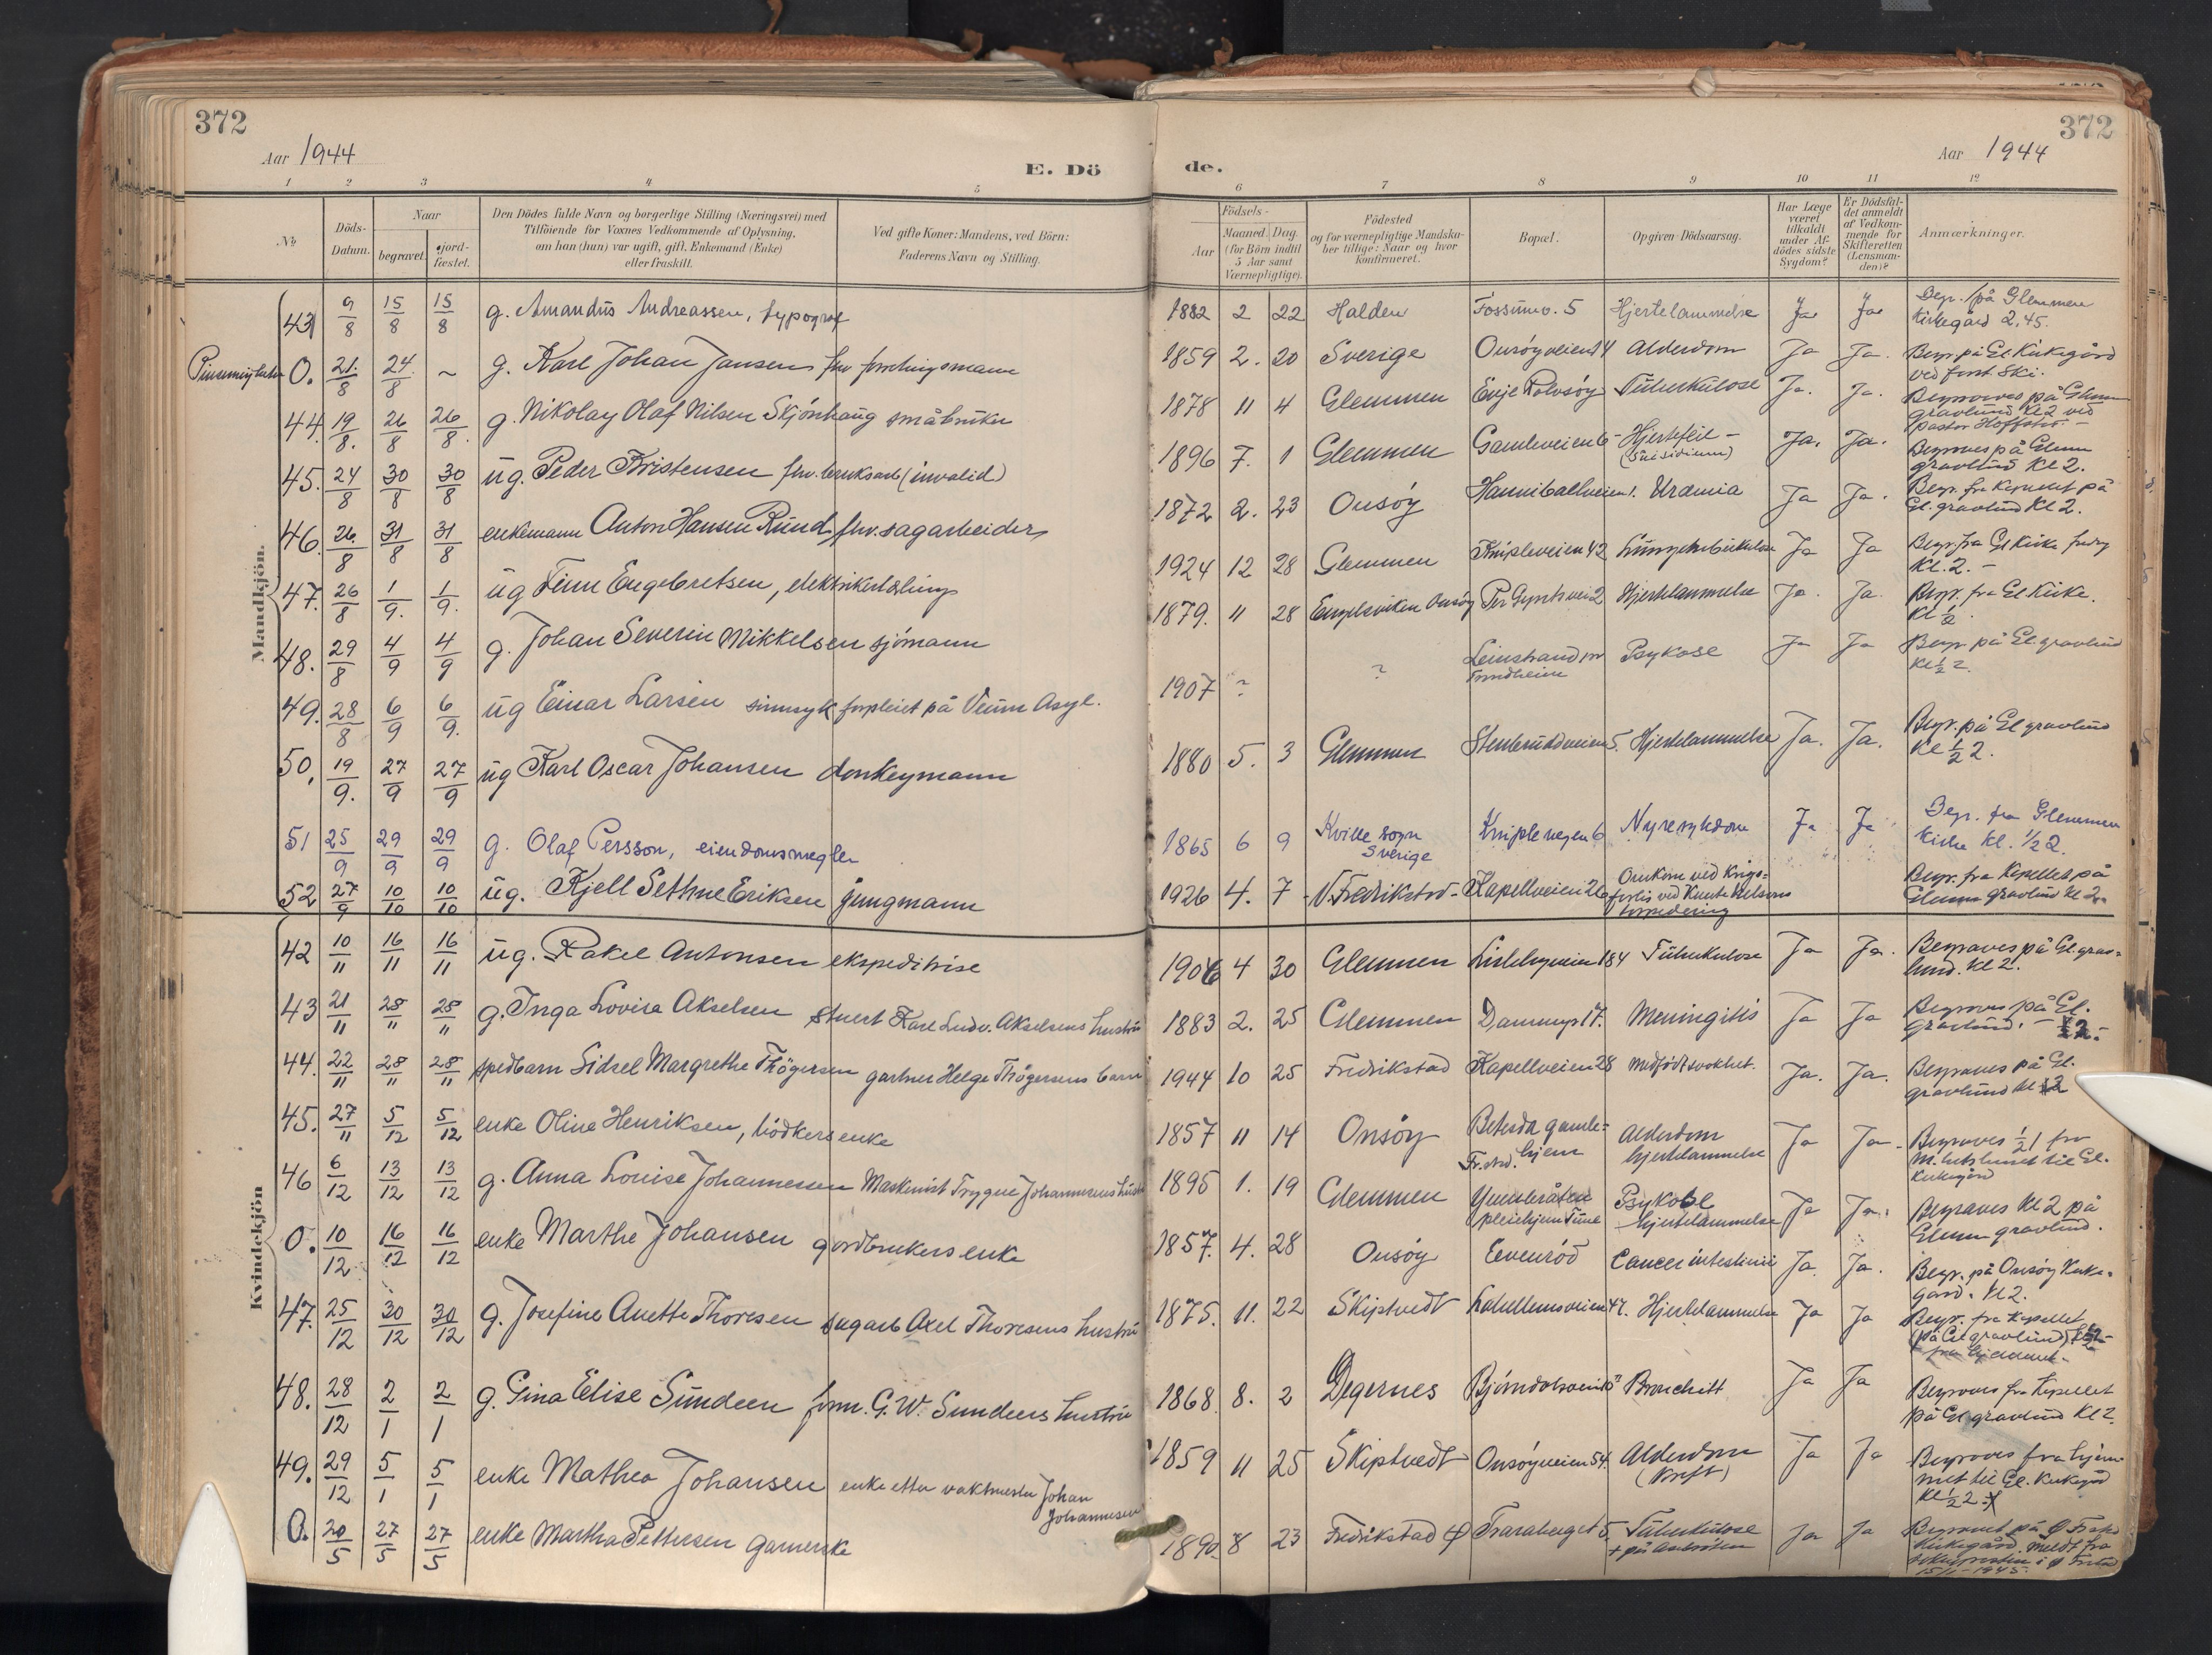 372
Aar 1944
E. Dö
1 2 3 4 5
No
Döds-
Datum.
Naar
begravet.
jord-
fæstet.
Den Dödes fulde Navn og borgerlige Stilling (Næringsvei) med
Tilföiende for Voxnes Vedkommende af Oplysning,
om han (hun) var ugift, gift, Enkemand (Enke)
eller fraskilt.
Ved gifte Koner: Mandens, ved Börn:
Faderens Navn og Stilling.
Mandkjön.
43 9/8 15/8 15/8 g. Amandus Andreassen, typograf
0. 21/8 24/8 ~ g. Karl Johan Jansen fhv forretningsmann
44. 19/8 26/8 26/8 g. Nikolay Olaf Nilsen Skjönhaug småbruker
45. 24/8 30/8 30/8 ug. Peder Kristensen fhv. bruksarb (invalid)
46. 26/8 31/8 31/8 enkemann Anton Hansen Rund fhv. sagarbeider
47. 26/8 1/9 1/9 ug Finn Engebretsen, elektrikerlærling
48. 29/8 4/9 4/9 g. Johan Severin Mikkelsen sjömann
49. 28/8 6/9 6/9 ug Einar Larsen sinnsyk forpleiet på Veum Asyl.
50. 19/9 27/9 27/9 ug Karl Oscar Johansen donkeymann
51 25/9 29/9 29/9 g. Olaf Persson, eiendomsmegler
52 27/9 10/10 10/10 ug. Kjell Sethne Eriksen jungmann
Kvindekjön
42 10/11 16/11 16/11 ug. Rakel Antonsen ekspeditrise
43 21/11 28/11 28/11 g. Inga Lovise Akselsen stuert Karl Ludv. Akselsens hustru
44. 22/11 28/11 28/11 spedbarn Sidsel Margrethe Thögersen gartner Helge Thögersens barn
45. 27/11 5/12 5/12 enke Oline Henriksen, bödkersenke
46 6/12 13/12 13/12 g. Anna Louise Johannessen Maskinist Trygve Johannesens hustru
0. 10/12 16/12 16/12 enke Marthe Johansen gårdbrukers enke
47. 25/12 30/12 30/12 g. Josefine Anette Thoresen sagarb Axel Thoresens hustru
48. 28/12 2/1 2/1 g. Gina Elise Sundeen form. G. W. Sundeens hustru
49. 29/12 5/1 5/1 enke Mathea Johansen enke etter vaktmester Johan
Johannesen
0. 20/5 27/5 27/5 enke Martha Pettersen
372
Aar 1944
de.
6 7 8 9 10 11 12
Födsels-
Aar
Maaned. Dag.
(for Börn indtil
5 Aar samt
Værnepligtige).
Födested
og for værnepligtige Mandska-
ber tillige: Naar og hvor
Konfirmeret.
Bopæl.
Opgiven Dödsaarsag.
Har Læge
været
tilkaldt
under Af-
dödes sidste
Sygdom?
Er Dödsfal-
det anmeldt
af Vedkom-
mende for
Skifteretten
(Lensman-
den)?
Anmærkninger.
1882 2 22 Halden Fossumv. 5 Hjertelammelse Ja Ja Begr. på Glemmen
Kirkegård 2,45.
1859 2. 20 Sverige Onsöyveien 14 Alderdom Ja Ja. Begr på Gl Kirkegård
ved forst. Ski.
1878 11 4 Glemmen Evje Rolvsöy Tuberkulose Ja. Ja. Begraves på Glemm
gravlund Kl 2 ved
pastor
1896 7. 1 Glemmen Gamleveien 6 Hjertefeil -
(Suisidium) Ja. Ja. Begraves på Glemm
gravlund Kl 2.
1872 2. 23 Onsöy Uræmia Ja Ja. Begr. fra Kapellet på
Gl. gravlund Kl 2.
1924 12 28 Glemmen Knipleveien 42 Lungetuberkulose Ja Ja Begr. fra Gl Kirke
Kl. 2. -
1879. 11 28 Engelsviken Onsöy Per Gyntsvei 2 Hjertelammelse Ja. Ja. Begr. fra Gl Kirke.
Kl 1/2
1907 ? ? Leinstrand pr
Trondheim Psykose Ja Ja Begr på Gl. gravlund
Kl 1/2 2.
1880 5. 3 Glemmen Stenbruddveien 5. Hjertelammelse Ja. Ja. Begr. på Gl gravlund
Kl 1/2 2.
1865 6 9 Kville sogn
Sverige Kniplevegen 6 Nyresykdom Ja Ja Begr. fra Glemmen
kirke Kl. 1/2 2.
1926 4. 7 V. Fredrikstad Kapellveien 26 Omkom ved krigs-
forlis ved Knute Nelsons
torpedering Begr. fra Kapellet på
Glemm gravlund Kl 2.
1906 4 30 Glemmen 184 Tuberkulose Ja Ja. Begraves på Gl. grav-
lund. Kl 2.
1883 2. 25 Glemmen Dammyr 17. Meningitis Ja Ja Begraves på Gl.
gravlund. -
1944 10 25 Fredrikstad Kapellveien 28 Medfödt svakhet. Ja. Ja. Begraves på Gl.
gravlund Kl 2
1857 11 14 Onsöy Betesda gamle-
hjem Fr.stad. Alderdom
hjertelammelse Ja Ja Begraves 1/2 1 fra
til Gl.
Kirkegård
1895 1. 19 Glemmen
pleiehjem Tune Psykose
hjertelammelse Ja Ja. Begraves Kl 2 på
Glemm gravlund.
1857. 4. 28 Onsöy Evenröd Cancer intestinii Ja Ja. Begr. på Onsöy Kirke-
gård. Kl 2.
1875. 11. 22 Skiptvedt 47. Hjertelammelse Ja Ja Begr. fra Kapellet
(på Gl gravlund)
1868 8. 2 Degernes Bronchitt Ja Ja Begraves fra Kapellet
på Gl gravlund Kl 2.
1859 11 25 Skiptvedt Onsöyveien 54. Alderdom
(Kreft) Ja Ja Begraves fra hjem-
met til Gl. Kirkegård
Kl 1/2 2
1890. 8 23 Fredrikstad Ø Traraberget 5. Tuberkulose Ja Ja Begravet på Ø Fr.stad
Kirkegård. Meldt fra
soknepresten i Ø Fr.stad
15/1-1945.